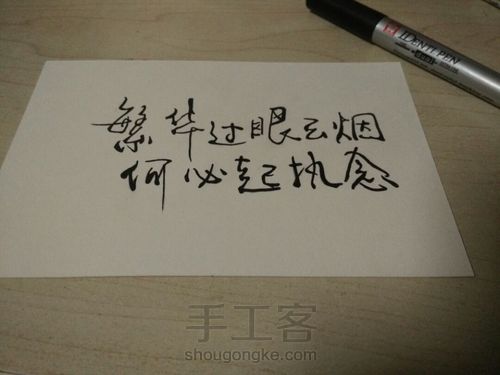 繁华过眼云烟
何必起执念
IDENTI·PEN
手工客
shougongke.com